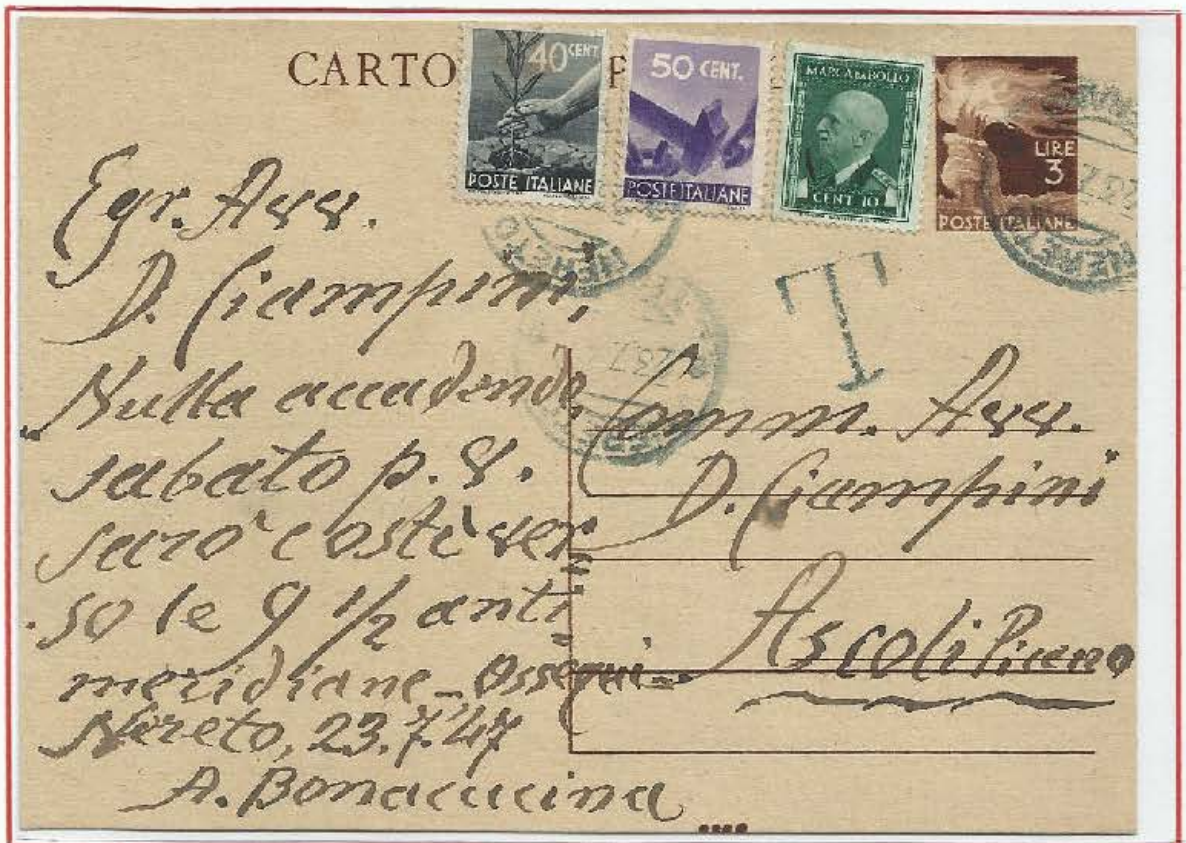 CARTO P
40 CENT
POSTE ITALIANE
50 CENT.
POSTE ITALIANE
MARCA DA BOLLO
CENT 10
LIRE
3
POSTE ITALIANE
NERETO
T
23.7
NERETO
Egr. Avv.
D. Ciampini,
Nulla accadendo,
sabato p. v.
sarò costì ver=
so le 9 1/2 anti=
meridiane_Ossequi=
Nereto, 23.7.47
A. Bonacucina
Comm. Avv.
D. Ciampini
Ascoli Piceno